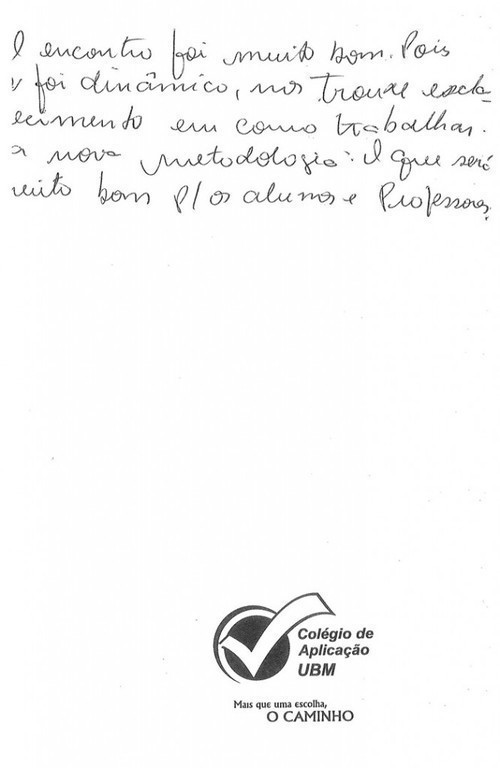 O encontro foi muito bom. Pois
foi dinâmico, nos trouxe escla-
ecimento em como trabalhar.
a nova metodologia. O que será
muito bom p/ os alunos e Professores.
Colégio de
Aplicação
UBM
Mais que uma escolha,
O CAMINHO